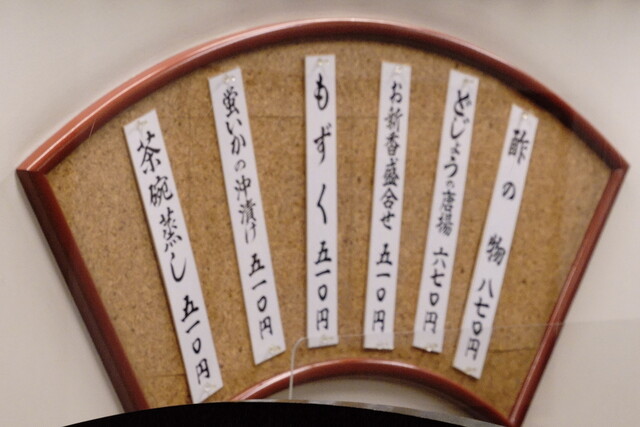 酢の物 八七〇円
どじょうの唐揚 六七〇円
お新香盛合せ 五一〇円
もずく 五一〇円
蛍いかの沖漬け 五一〇円
茶碗蒸し 五一〇円